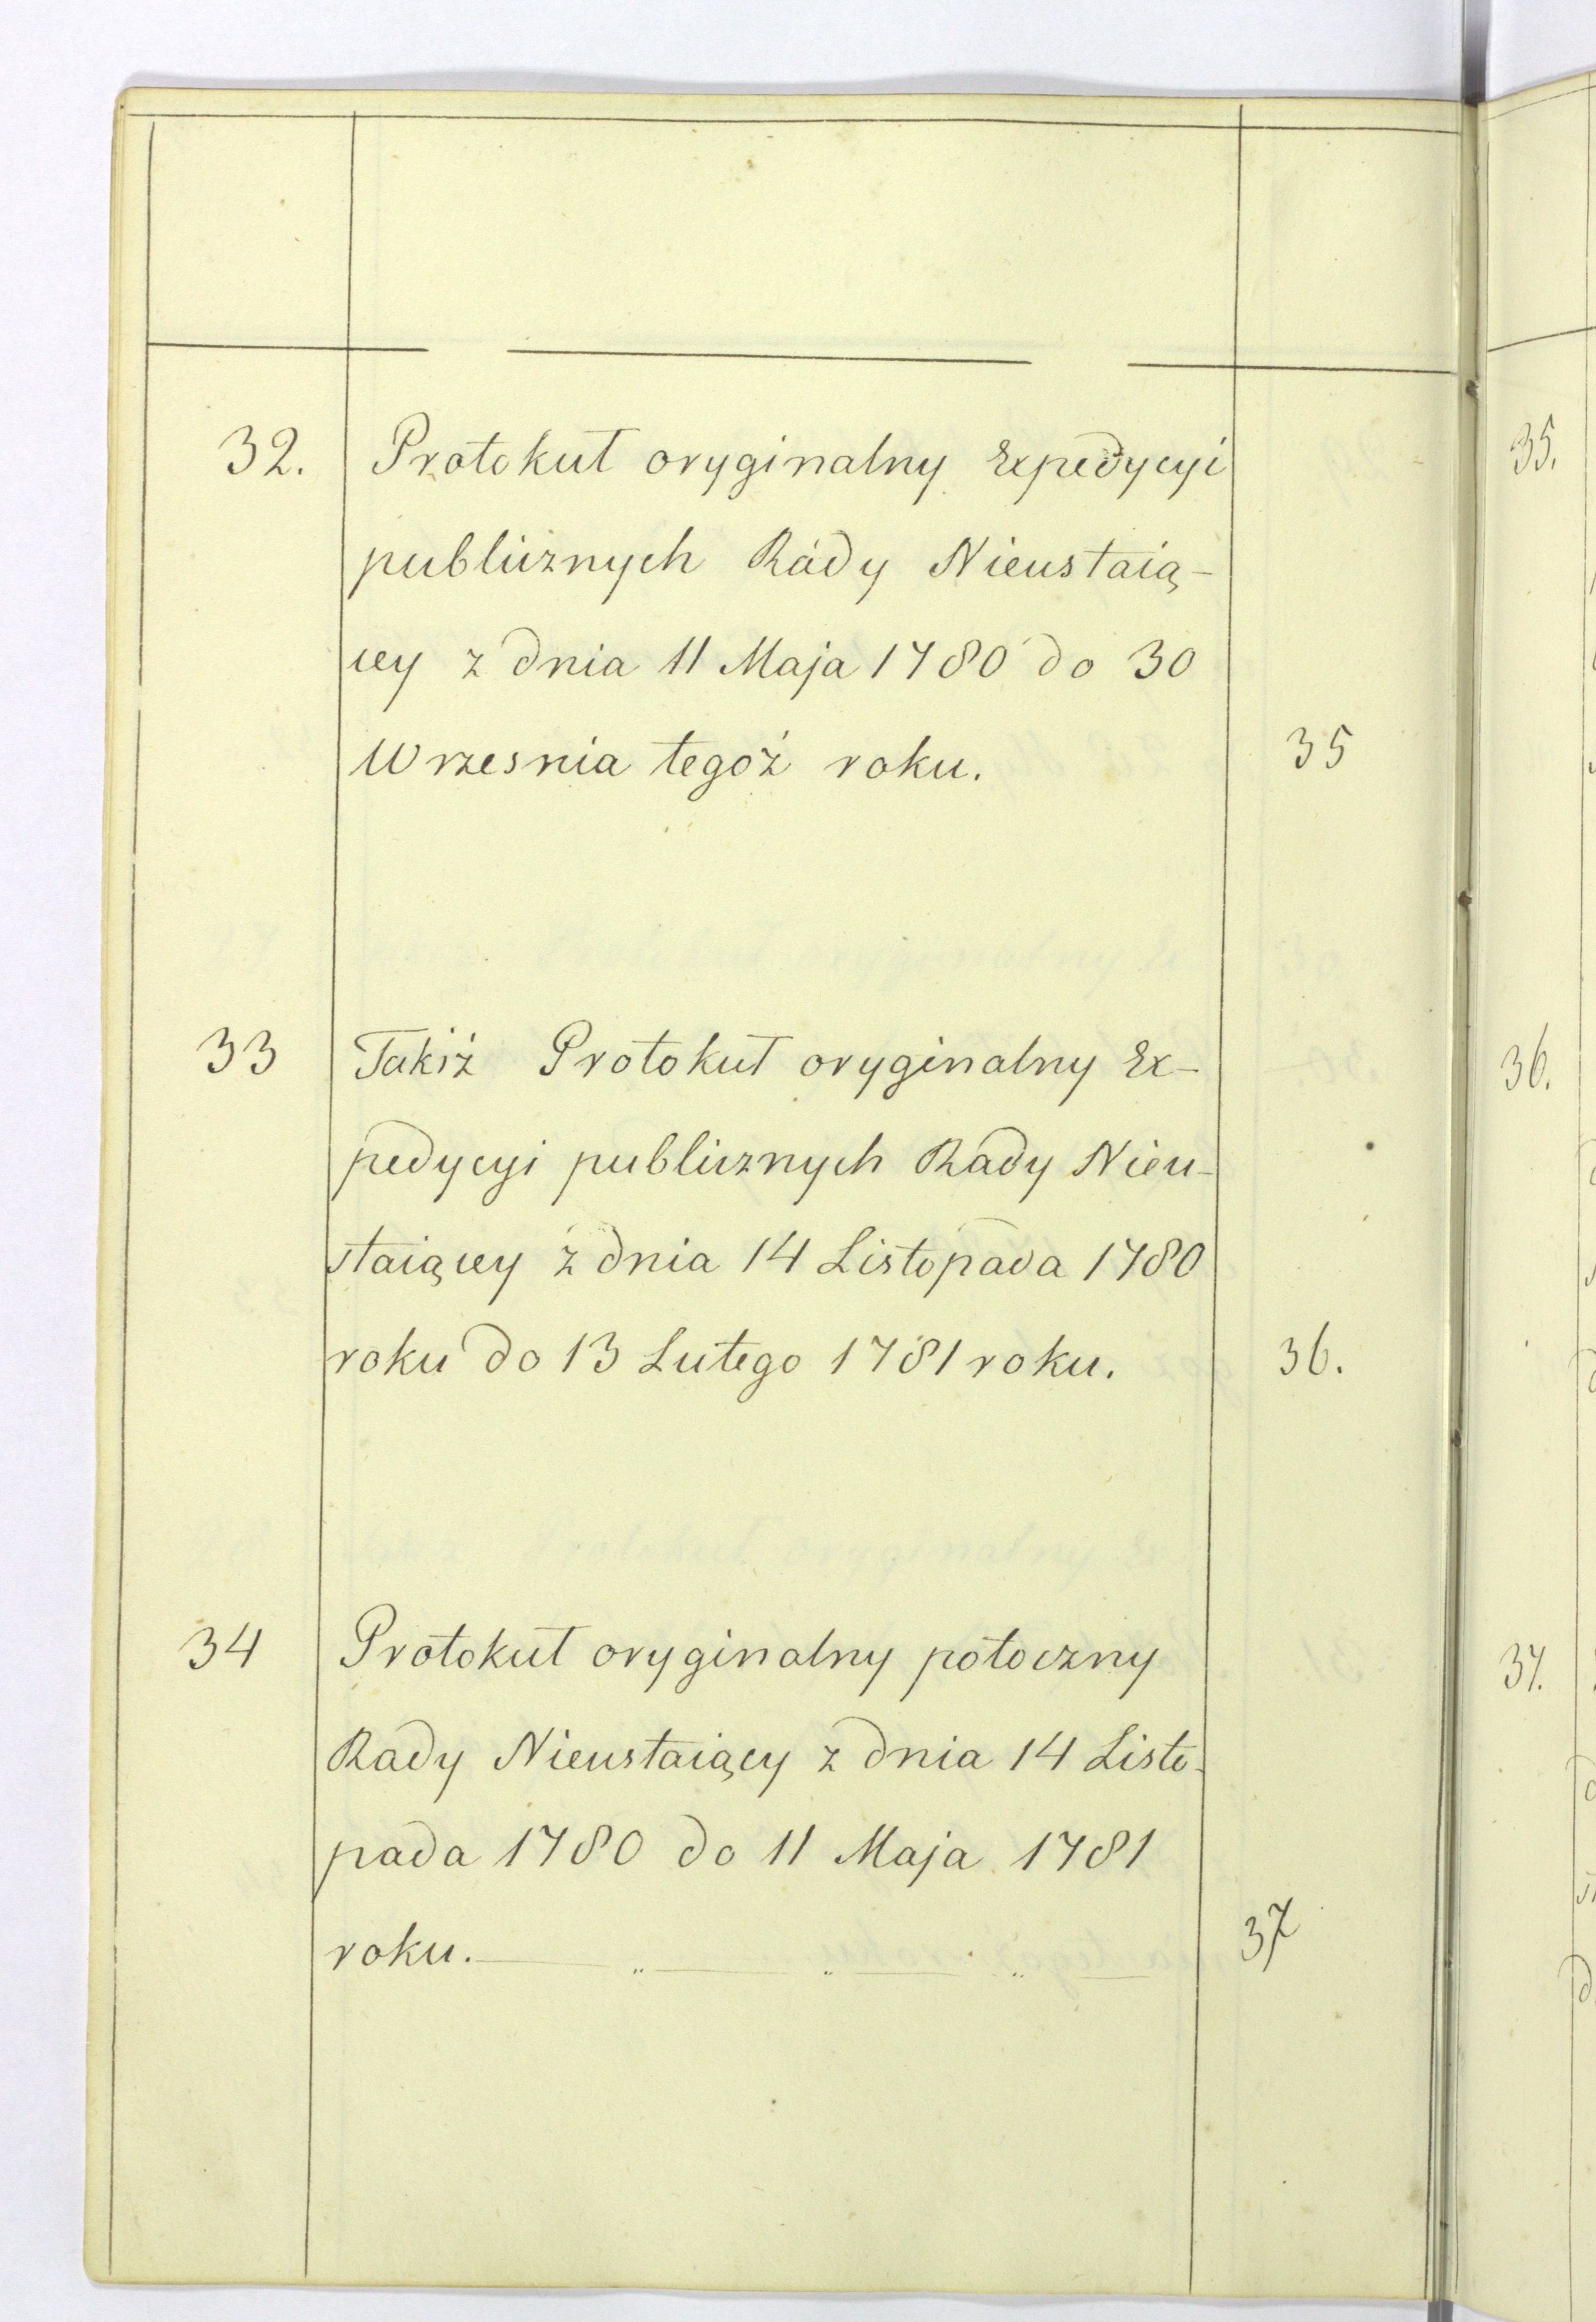 32. Protokuł oryginalny Expedycyi
publicznych Rady Nieustaią-
cey z dnia 11 Maja 1780 do 30
Wrzesnia tegoż roku. 35
33 Takiż Protokuł oryginalny Ex-
pedycyi publicznych Rady Nieu-
staiącey z dnia 14 Listopada 1780
roku do 13 Lutego 1781 roku. 36.
34 Protokuł oryginalny potoczny
Rady Nieustaiący z dnia 14 Listo-
pada 1780 do 11 Maja 1781
roku. 37
35.
36.
37.